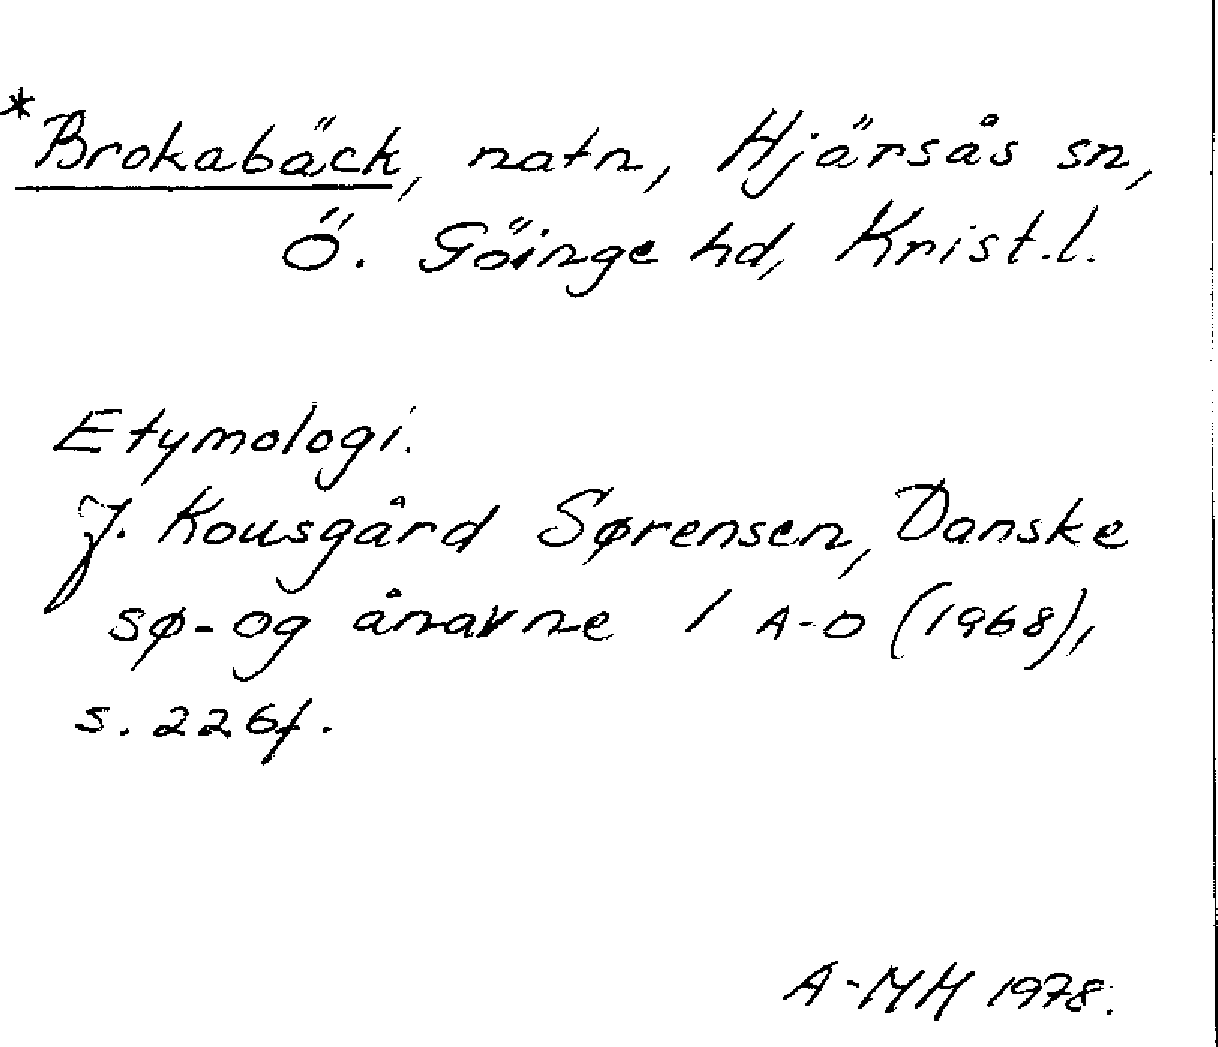 *Brokabäck, natn, Hjärsås sn,
Ö. Göinge hd, Krist.l.
Etymologi.
J. Kousgård Sørensen, Danske
sø- og ånavne 1 A-D (1968),
s. 226f.
A-MH 1978.